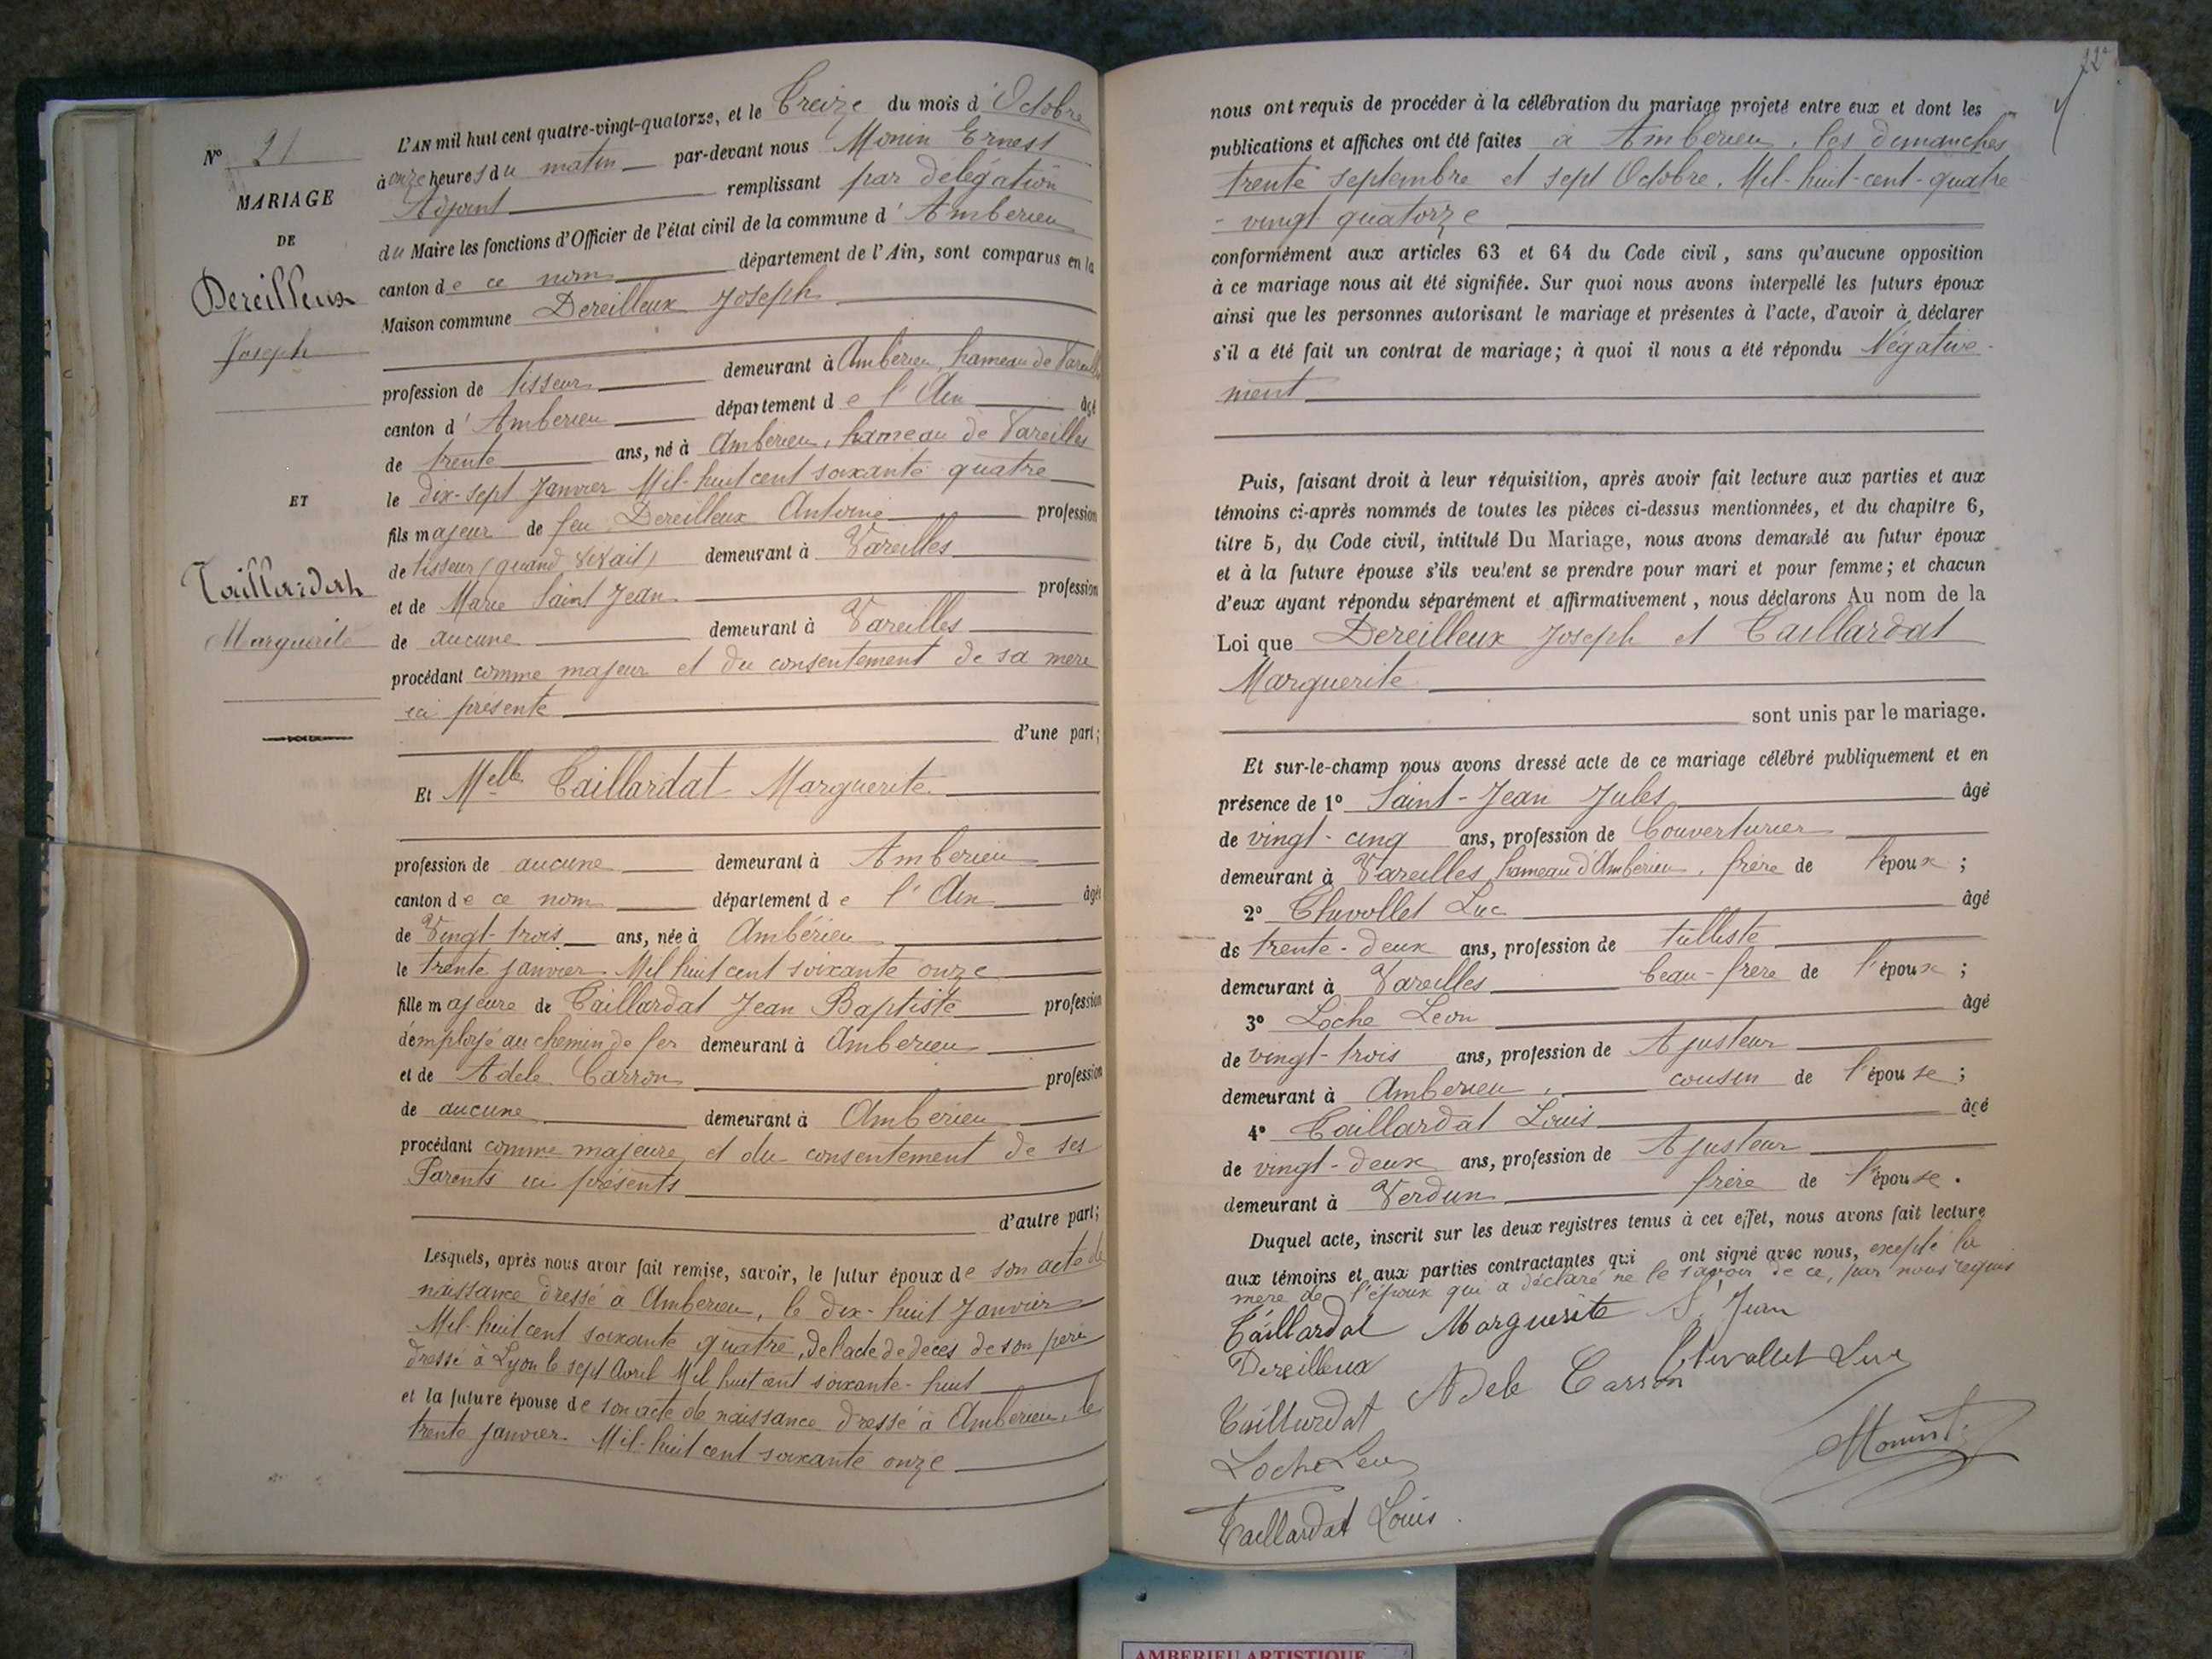 N° 21
MARIAGE
DE
Dereilleux
Joseph
ET
Taillardat
Marguerite
L'AN mil huit cent quatre-vingt-quatorze, et le Treize du mois d'Octobre
à onze heures du matin par-devant nous Monin Ernest
Adjoint remplissant par délégation
du Maire les fonctions d'Officier de l'état civil de la commune d'Amberieu
canton de ce nom département de l'Ain, sont comparus en la
Maison commune Dereilleux Joseph
profession de tisseur demeurant à Ambérieu, hameau de Vareilles
canton d'Amberieu département de l'Ain âgé
de trente ans, né à Amberieu, hameau de Vareilles
le dix-sept Janvier Mil-huit cent soixante quatre
fils majeur de feu Dereilleux Antoine profession
de tisseur (quand vivait) demeurant à Vareilles
et de Marie Saint Jean profession
de aucune demeurant à Vareilles
procédant comme majeur et du consentement de sa mere
ici présente
d'une part;
Et Melle Taillardat Marguerite
profession de aucune demeurant à Amberieu
canton de ce nom département de l'Ain âgée
de Vingt-trois ans, née à Ambérieu
le trente janvier Mil huit cent soixante onze
fille majeure de Taillardat Jean Baptiste profession
d'employé au chemin de fer demeurant à Amberieu
et de Adele Carron profession
de aucune demeurant à Amberieu
procédant comme majeure et du consentement de ses
Parents ici présents
d'autre part;
Lesquels, après nous avoir fait remise, savoir, le futur époux de son acte de
naissance dressé à Amberieu, le dix-huit Janvier
Mil-huit cent soixante quatre, de l'acte de décès de son père
dressé à Lyon le sept Avril Mil huit cent soixante-huit
et la future épouse de son acte de naissance dressé à Amberieu, le
trente janvier Mil-huit cent soixante onze
22
nous ont requis de procéder à la célébration du mariage projeté entre eux et dont les
publications et affiches ont été faites à Amberieu, les dimanches
trente septembre et sept Octobre, Mil-huit-cent-quatre
-vingt quatorze
conformément aux articles 63 et 64 du Code civil, sans qu'aucune opposition
à ce mariage nous ait été signifiée. Sur quoi nous avons interpellé les futurs époux
ainsi que les personnes autorisant le mariage et présentes à l'acte, d'avoir à déclarer
s'il a été fait un contrat de mariage; à quoi il nous a été répondu Négative-
ment
Puis, faisant droit à leur réquisition, après avoir fait lecture aux parties et aux
témoins ci-après nommés de toutes les pièces ci-dessus mentionnées, et du chapitre 6,
titre 5, du Code civil, intitulé Du Mariage, nous avons demandé au futur époux
et à la future épouse s'ils veulent se prendre pour mari et pour femme; et chacun
d'eux ayant répondu séparément et affirmativement, nous déclarons Au nom de la
Loi que Dereilleux Joseph et Taillardat
Marguerite
sont unis par le mariage.
Et sur-le-champ nous avons dressé acte de ce mariage célébré publiquement et en
présence de 1° Saint-Jean Jules âgé
de vingt-cinq ans, profession de Couverturier
demeurant à Vareilles, hameau d'Amberieu, frère de l'époux;
2° Chevollet Luc âgé
de trente-deux ans, profession de tulliste
demeurant à Vareilles beau-frère de l'époux;
3° Loche Leon âgé
de vingt-trois ans, profession de Ajusteur
demeurant à Amberieu, cousin de l'épouse;
4° Taillardat Louis âgé
de vingt-deux ans, profession de Ajusteur
demeurant à Verdun frère de l'épouse.
Duquel acte, inscrit sur les deux registres tenus à cet effet, nous avons fait lecture
aux témoins et aux parties contractantes qui ont signé avec nous, excepté la
mere de l'époux qui a déclaré ne le savoir de ce, par nous requis
Taillardat Marguerite St Jean
Dereilleux Chevallet Luc
Taillardat Adele Carron
Loche Leon Monin E
Taillardat Louis.
AMBERIEU ARTISTIQUE